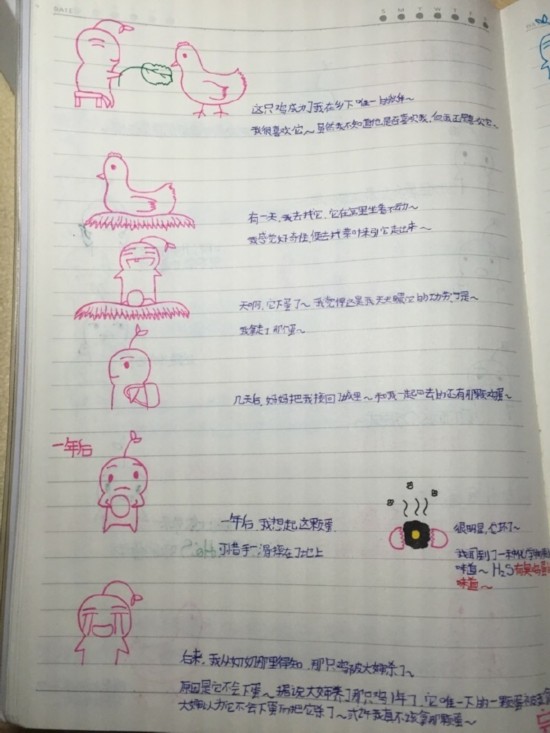 DATE
S M T W T F S
这只鸡成为了我在乡下唯一的伙伴~
我很喜欢它~虽然我不知道它是否喜欢我,但我还是喜欢它~
有一天,我去找它,它在窝里坐着不动~
我感觉好奇怪,便去找菜叶来引它走出来~
天啊,它下蛋了~我觉得这是我天天喂它的功劳~
我拿走了那个蛋~
几天后,妈妈把我接回城里~和我一起回去的还有那颗鸡蛋~
一年后
一年后,我想起这颗蛋
可惜手一滑摔在了地上
很明显,它坏了~
我闻到了一种化学
味道~H₂S有臭鸡蛋
味道~
后来,我从奶奶那里得知,那只鸡被大婶杀了~
原因是它不会下蛋~据说大婶养了那只鸡1年了,它唯一下的一颗蛋
大婶以为它不会下蛋而把它杀了~或许我真不该拿那颗蛋~